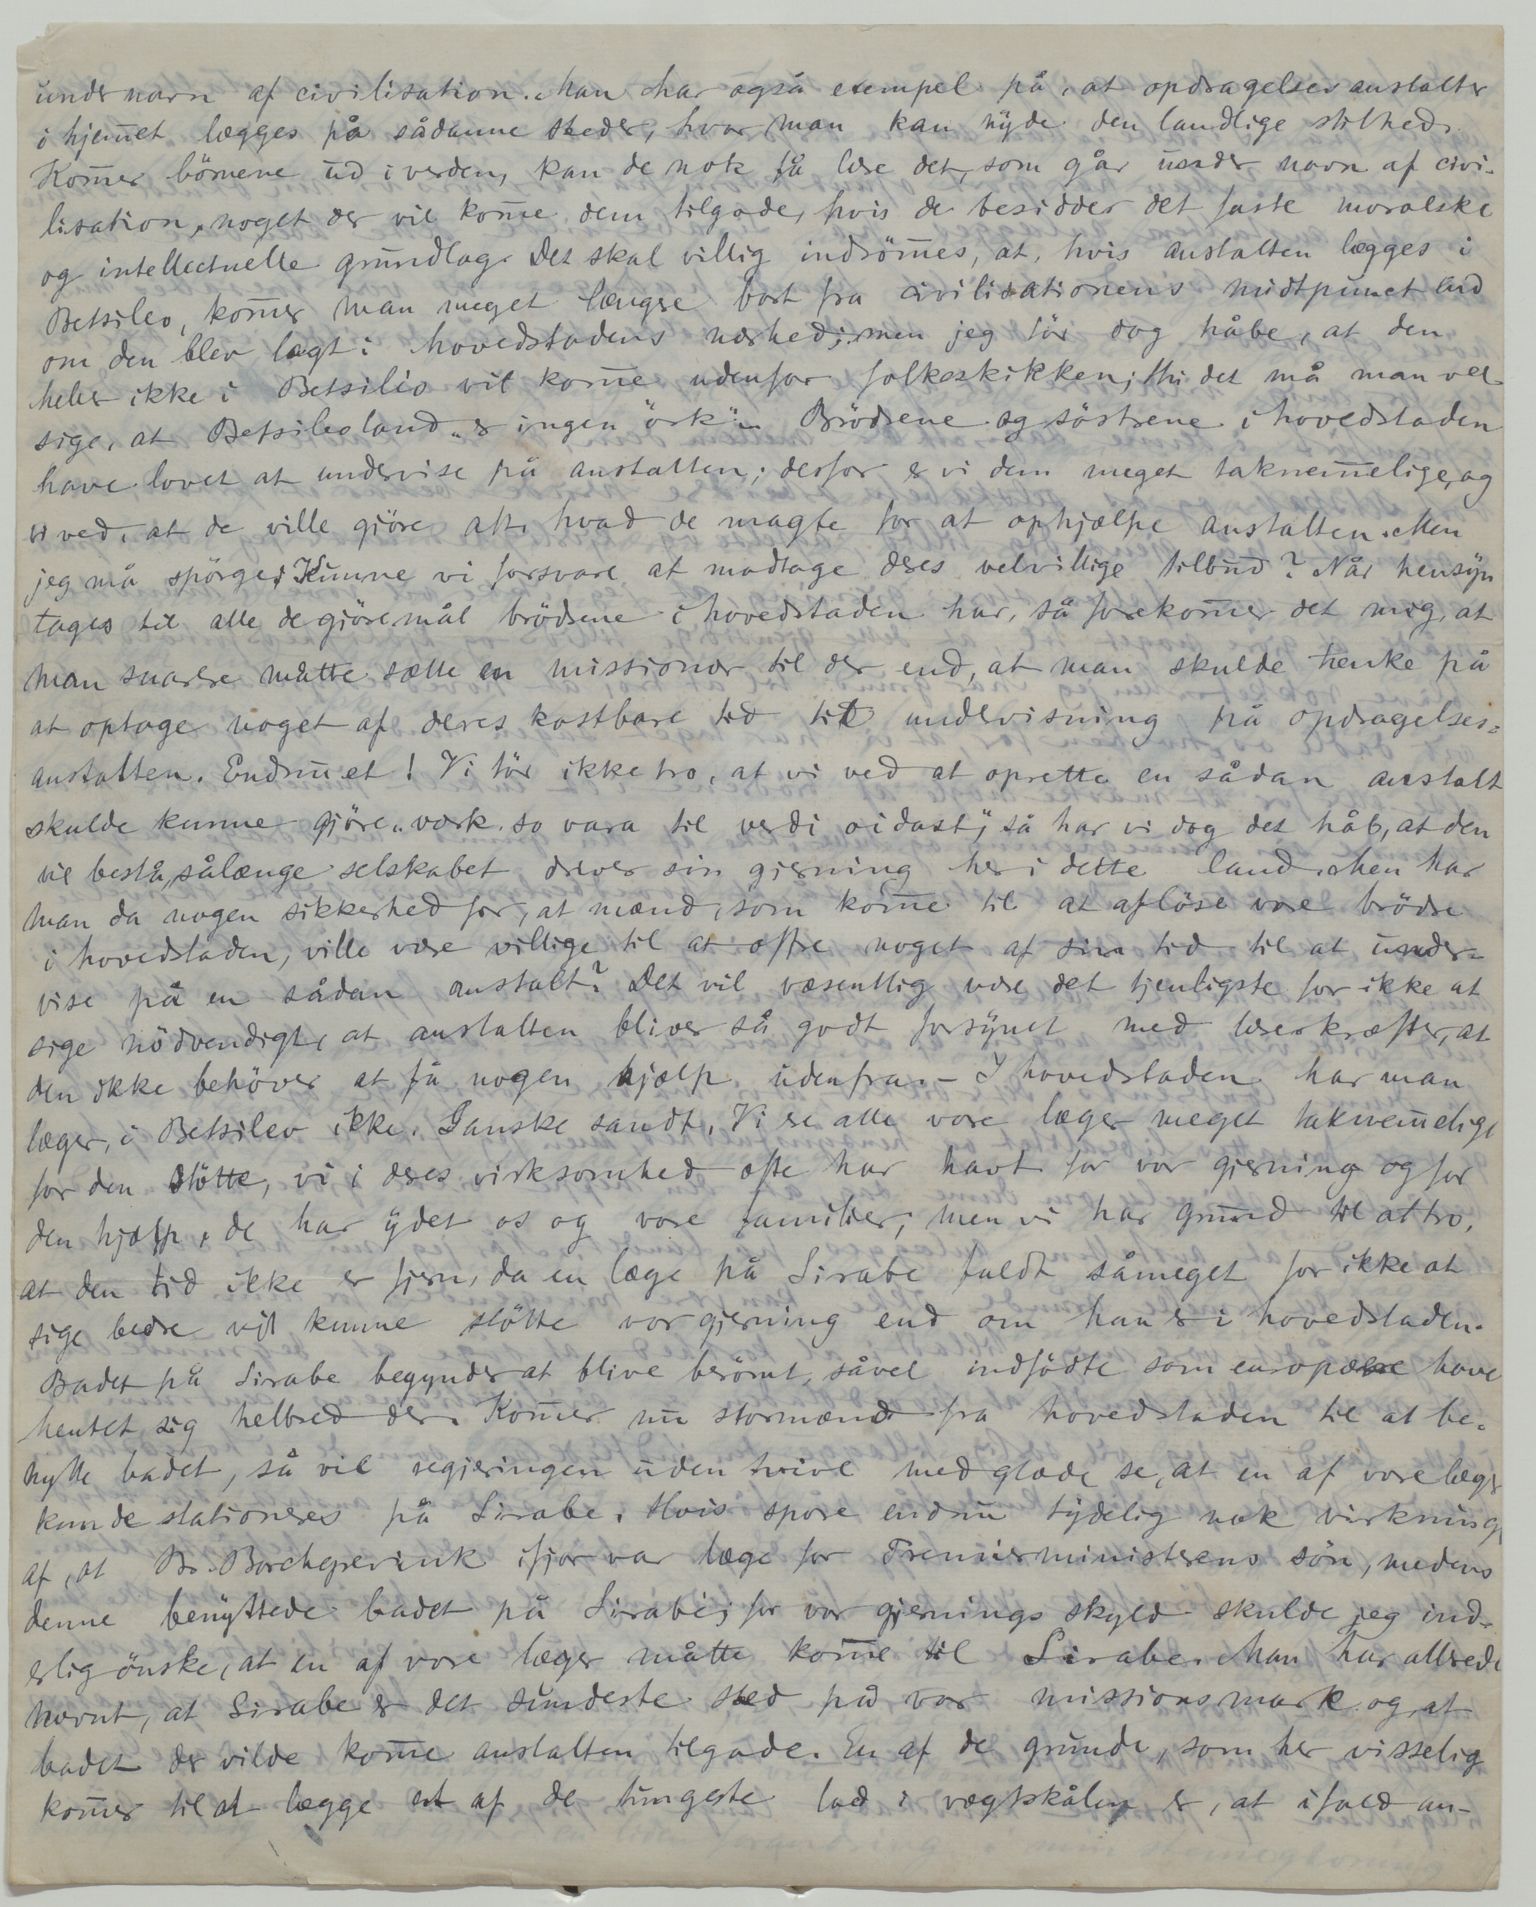 under navn af civilisation. Man har også exempel på, at opdragelsesanstalter
i hjem̅et lægges på sådanne steder, hvor man kan nyde den landlige stilhed.
Kom̅er börnene ud i verden, kan de nok få lære det, som går under navn af civi-
lisation, noget der vil kom̅e dem tilgode, hvis de besidder det faste moralske
og intellectuelle grundlag. Det skal villig indröm̅es, at, hvis anstalten lægges i
Betsileo, kom̅er man meget længre bort fra civilisationens midtpunct end
om den blev lagt i hovedstadens nærhed; men jeg tör dog håbe, at den
heller ikke i Betsileo vil kom̅e udenfor folkeskikken; thi det må man vel
sige, at Betsileoland „er ingen örk“. Brödrene og söstrene i hovedstaden
have lovet at undervise på anstalten; derfor er vi dem meget taknem̅elige, og
vi ved, at de ville gjöre alt, hvad de magte for at ophjælpe anstalten. Men
jeg må spörge: Kunne vi forsvare at modtage deres velvillige tilbud? Når hensyn
tages til alle de gjöremål brödrene i hovedstaden har, så forekom̅er det mig, at
man snarere måtte sætte en missionær til der end, at man skulde tænke på
at optage noget af deres kostbare tid til undervisning på opdragelses-
anstalten. Endnu et! Vi tör ikke tro, at vi ved at oprette en sådan anstalt
skulde kunne gjöre „værk so vara til verdi oidast“, så har vi dog det håb, at den
vil bestå, sålænge selskabet driver sin gjerning her i dette land. Men har
man da nogen sikkerhed for, at mænd, som kom̅e til at aflöse vore brödre
i hovedstaden, ville være villige til at ofre noget af sin tid til at under-
vise på en sådan anstalt? Det vil væsentlig være det tjenligste for ikke at
sige nödvendigt, at anstalten bliver så godt forsynet med lærerkræfter, at
den ikke behöver at få nogen hjælp udenfra. – I hovedstaden har man
læger, i Betsileo ikke. Ganske sandt. Vi ere alle vore læger meget taknem̅elige
for den stötte, vi i deres virksomhed ofte har havt for vor gjerning og for
den hjælp, de har ydet os og vore familier; men vi har grund til at tro,
at den tid ikke er fjern, da en læge på Sirabe fuldt såmeget for ikke at
sige bedre vil kunne stötte vor gjerning end om han er i hovedstaden.
Badet på Sirabe begynder at blive berömt, såvel indfödte som europæere have
hentet sig helbred der. Kom̅er nu stormænd fra hovedstaden til at be-
nytte badet, så vil regjeringen uden tvivl med glæde se, at en af vore læger
kunde stationeres på Sirabe. Hvis spore endnu tydelig nok virkning
af, at Br. Borchgrevink ifjor var læge for Premierministerens sön, medens
denne benyttede badet på Sirabe; for vor gjernings skyld skulde jeg ind-
erlig önske, at en af vore læger måtte kom̅e til Sirabe. Man har allerede
nævnt, at Sirabe er det sundeste sted på vor missionsmark og at
badet der vilde kom̅e anstalten tilgode. En af de grunde, som her visselig
kom̅er til at lægge et af de tungeste lod i vægtskålen er, at ifald an-